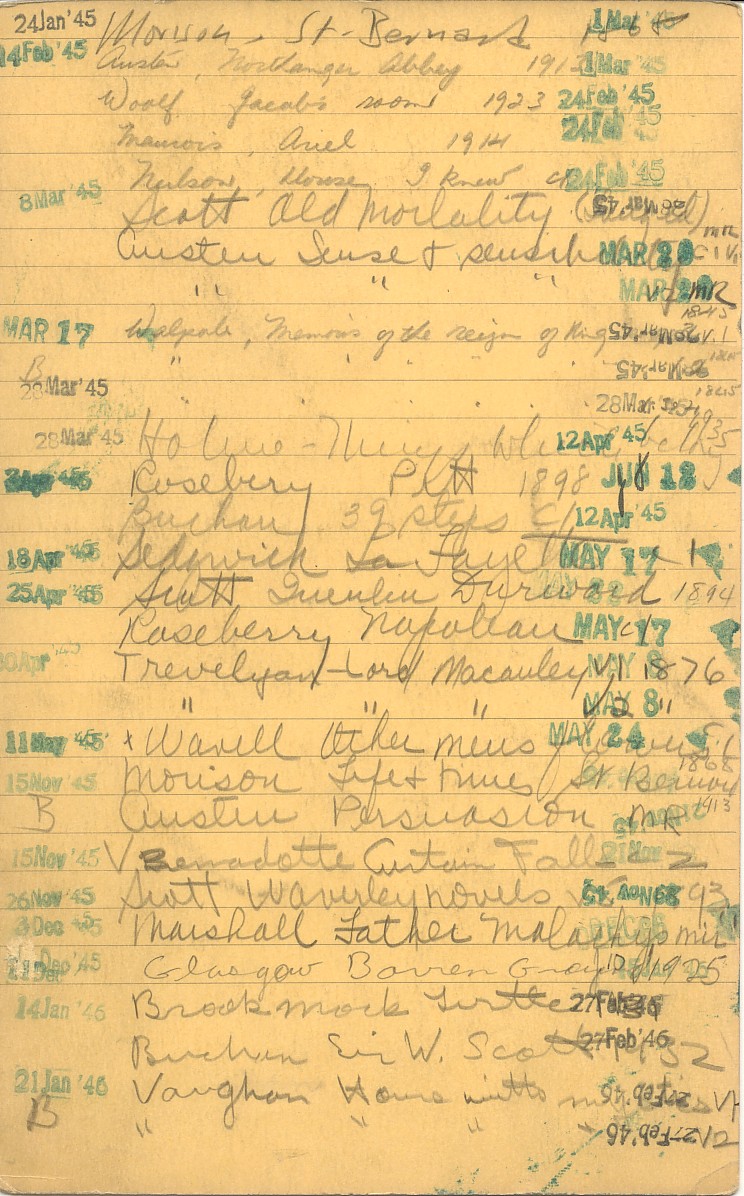 24 Jan '45 Morison, St. Bernard 1868 1 Mar
14 Feb '45 Austen, Northanger Abbey 1913 1 Mar '45
Woolf Jacob's room 1923 24 Feb '45
Maurois, Ariel 1914 24 Feb '45
Neilson, House I knew 24 Feb '45
8 Mar '45 Scott Old Mortality 28 Mar '45
Austen Sense & sensibility MAR 29 C1 V1 MR
" " " MAR 29 V2 MR
MAR 17 Walpole, Memoirs of the reign of King 28 Mar '45 V.1 1845
B " " " 28 Mar '45 1845
28 Mar '45 " 28 Mar '45 1845
28 Mar '45 Holme - 12 Apr '45 1935
3 Apr '45 Rosebery Pitt 1898 JUN 12
Buchan 39 steps C1 12 Apr '45
18 Apr '45 Sedgwick La Fayette MAY 17 C1
25 Apr '45 Scott Quentin Durward 1894
Roseberry Napoleon C1 MAY 17
30 Apr '45 Trevelyan - Lord Macauley V1 1876 MAY 8
" " " V2 " MAY 8
11 May '45 x Wavell Other mens flowers C1 MAY 24
15 Nov '45 Morison Life & times St. Bernard 1868
B Austen Persuasion MR 1913
15 Nov '45 V Bernadotte Curtain Falls 21 Nov
26 Nov '45 Scott Waverley novels 29 Nov '45
3 Dec '45 Marshall Father Malachys mir
11 Dec '45 Glasgow Barren Ground 1925
14 Jan '46 Brook Mock Turtle 27 Feb '46
Buchan Sir W. Scott 1932 27 Feb '46
21 Jan '46 Vaughan House 27 Feb '46 V1
B " " " " 27 Feb '46 V2